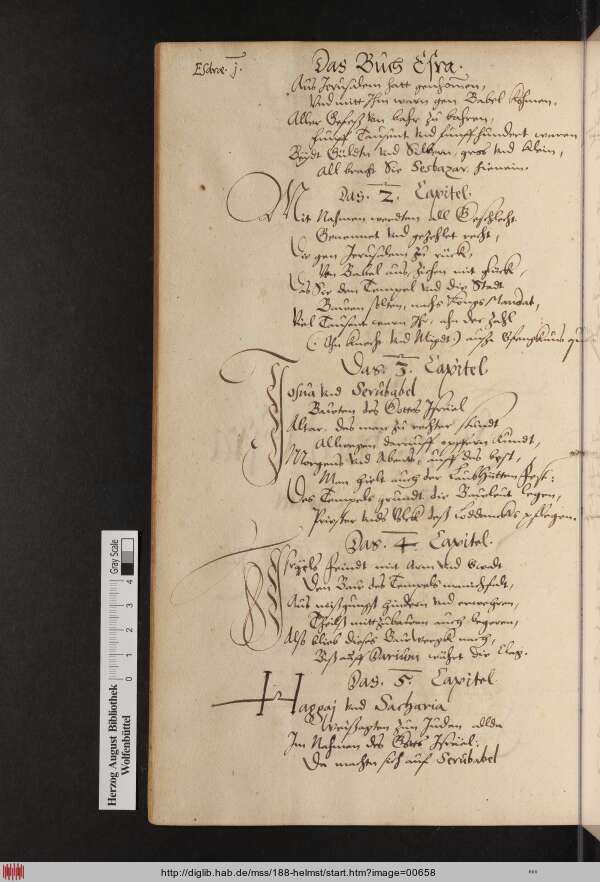 Esdræ. j.
Das Buch Esra.
Aus Jerusalem hatt genhomen,
Vnd mitt Ihm warn gen Babel khomen.
Aller Gefess von bahr zu bahren,
Funff Tausent vnd funffhundert waren
Beydt Gülden vnd Silbern, gros vnd klein,
All bracht Sie Sesbazar
Das. 2. Capitel.
Mit Nahmen werdten all Geschlecht
Genennet vnd gezehlet recht,
Die gen Jerusalem zu rück,
Von Babel aus, zihen mit glück,
Das Sie den Tempel vnd die Stadt
Bauen solten, nachs Königs Mandat,
Viel Tausent warn Ihr, ohn der Zahl
(: Ohn knecht vnd Mägdt :)
Das. 3. Capitel.
Josua vnd Serubabel
Baweten des Gottes Israel
Altar, das man zu rechter stundt
Allwegen darauff opffern kundt,
Morgens vnd Abents, auffs best,
Man hielt auch der Laubhütten Fest:
Des Tempels grundt die Bauleut legen,
Priester vnds Volck des Loddancks pflegen.
Das. 4. Capitel.
Israels Feindt mit Arm vnd
Den Baw des Tempels manichfalt,
Aus missgunst hindern vnd erwehren,
Theils mitt zubauen auch begeren,
Alss blieb dieses Bauwergk nach,
Biss auff Darium wehret die Clag.
Das. 5. Capitel.
Haggaj vnd Sacharia
Weissagten zun Juden allda
Im Nahmen des Gotts Israel:
Da machte sich auf Serubabel
Herzog August Bibliothek
Wolfenbüttel
Gray Scale
0 1 2 3 4
http://diglib.hab.de/mss/188-helmst/start.htm?image=00658